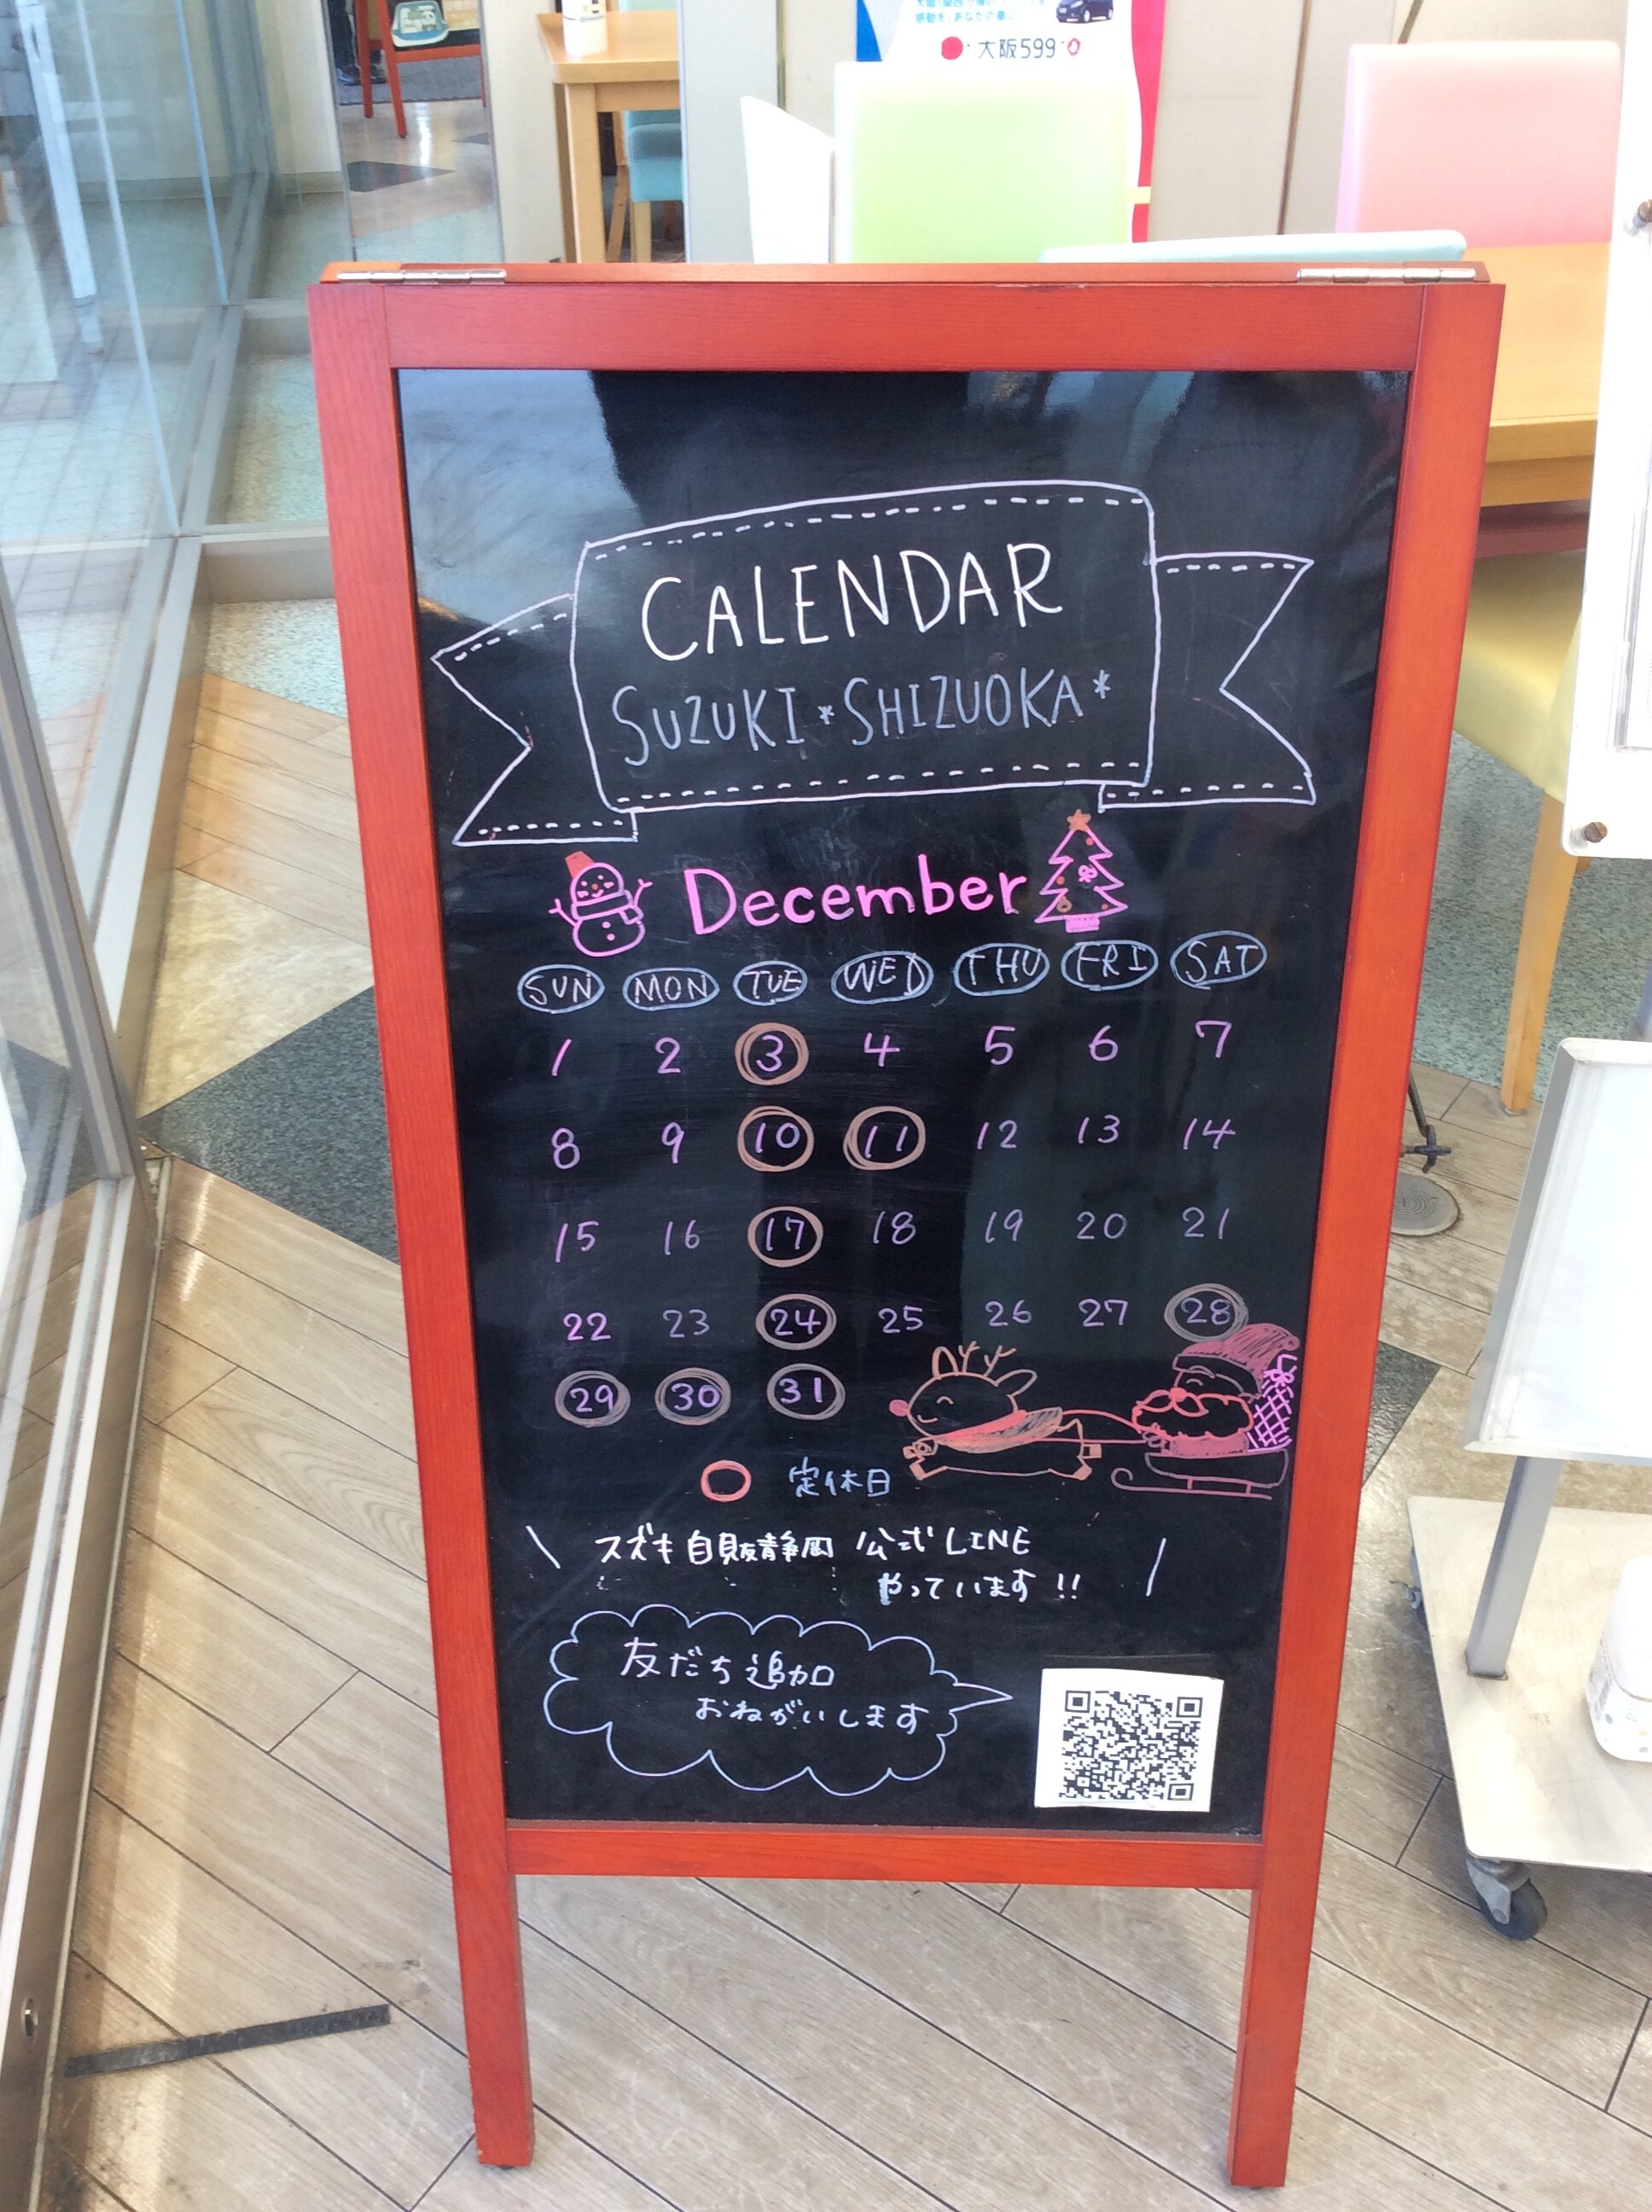 感動を、あなたの車に
大阪599
CALENDAR
SUZUKI*SHIZUOKA*
December
SUN MON TUE WED THU FRI SAT
1 2 3 4 5 6 7
8 9 10 11 12 13 14
15 16 17 18 19 20 21
22 23 24 25 26 27 28
29 30 31
定休日
\ スズキ自販静岡 公式LINE
やっています!! /
友だち追加
おねがいします